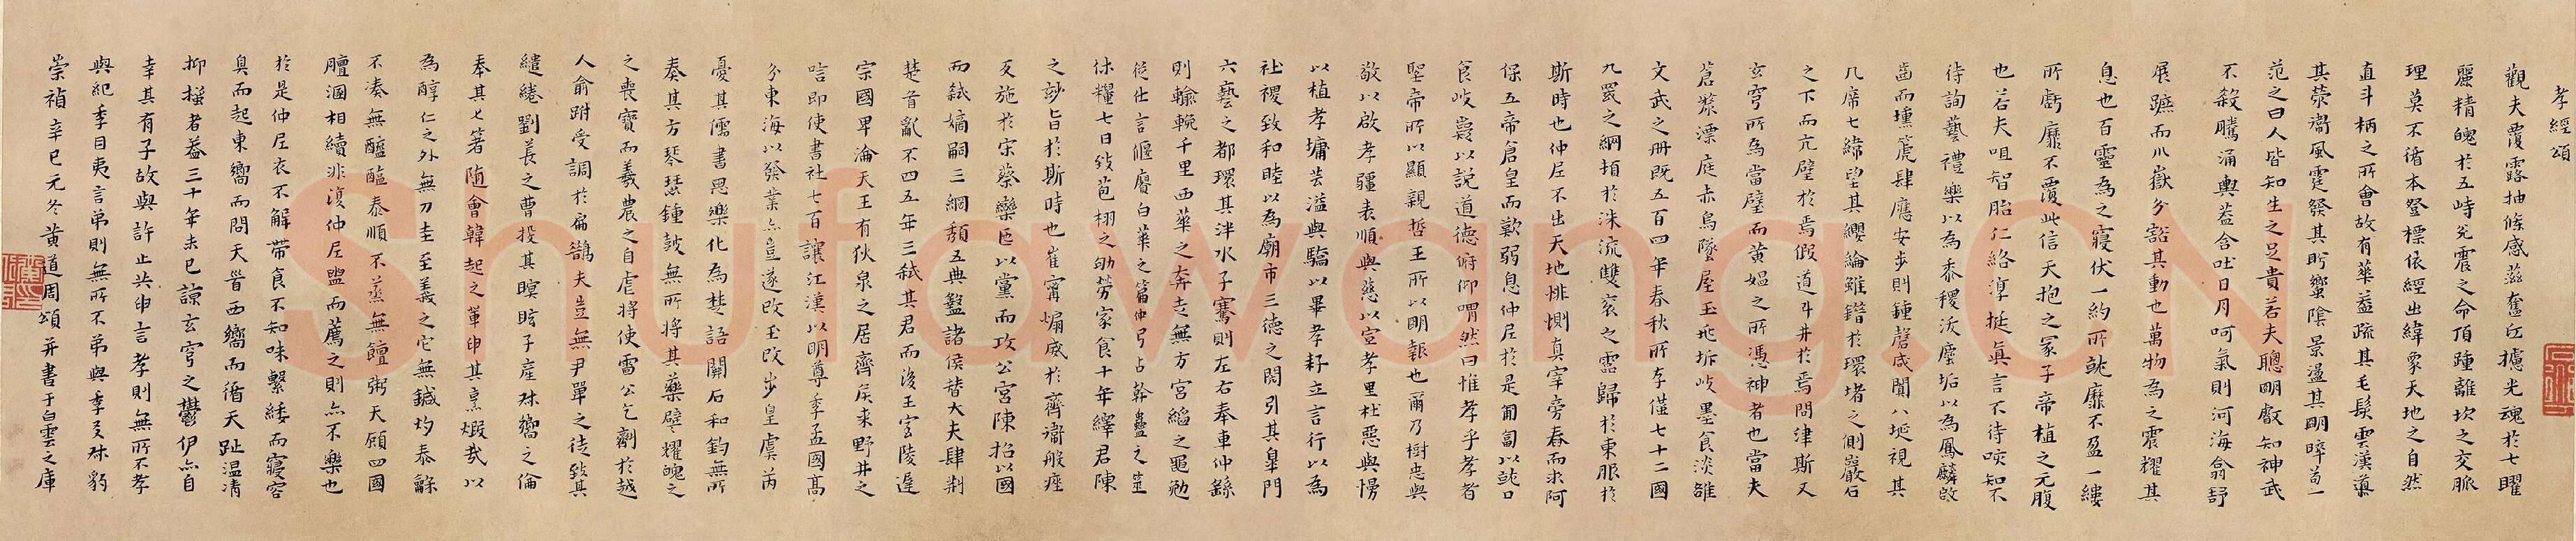 孝經頌
觀夫覆露抽條感茲奮丘攄光魂於七曜
麗精魄於五峙兇震之命頂踵離坎之交脈
理莫不循本發標依經出緯象天地之自然
直斗柄之所會故有華蓋疏其毛髮雲漢導
其滎衞風霆發其貯蠁陰景盪其明晬苟一
范之曰人皆知生之足貴若夫聰明叡知神武
不殺騰涌輿蓋含吐日月呵氣則河海翕舒
展蹠而川嶽分豁其動也萬物為之震耀其
息也百靈為之寢伏一約所誂靡不盈一縷
所虧靡不覆此信天抱之冢子帝植之元腹
也若夫咀智胎仁絡淳挺真言不待咳知不
待詢藝禮樂以為黍稷沃塵垢以為鳳麟啟
齒而壎箎肆應安步則鍾磬咸聞八埏視其
几席七緯望其纓綸雖錯於環堵之側巖石
之下而亢璧於焉假道斗井於焉問津斯又
玄穹所為當璧而黃媼之所憑神者也當夫
蒼漦漂庭赤烏墜屋玉兆坼岐墨食淡雒
文武之冊既五百四年春秋所存僅七十二國
九罭之綱頓於洙流雙袞之靈歸於東服於
斯時也仲尼不出天地悱惻真宰旁春而求阿
保五帝倉皇而歎弱息仲尼於是匍匐以就口
食岐嶷以說道德俯仰喟然曰惟孝乎孝者
聖帝所以顯親哲王所以明報也爾乃樹忠與
敬以啟孝疆表順與慈以宣孝里杜惡與慢
以植孝墉芸溢與驕以畢孝耔立言行以為
社禝致和睦以為廟市三德之閎引其皋門
六藝之都環其泮水子騫則左右奉車仲繇
則輸輓千里西華之奔走無方宮縚之黽勉
從仕言偃賡白華之篇仲弓占幹蠱之筮
休糧七日發苞栩之劬勞家食十年繹君陳
之玅旨於斯時也崔甯煽威於齊衞般痤
叐施於宋蔡欒卮以黨而攻公宮陳招以國
而弒嫡嗣三綱頹五典盭諸侯替大夫肆荆
楚首亂不四五年三弒其君而後王室陵遲
宗國卑淪天王有狄泉之居齊矦来野井之
唁即使書社七百讓江漢以明尊季孟國高
分東海以發業亦豈遂改玉改步皇虞芮
憂其儒書思樂化為楚語關石和鈞無所
奏其方琴瑟鍾鼓無所將其藥譬燿魄之
之喪寶而羲農之自虐將使雷公乞劑於越
人俞跗受調於扁鵲夫豈無尹單之徒致其
繾綣劉萇之曹投其瞑眩子產叔嚮之倫
奉其匕箸随會韓起之軰申其烹煅哉以
為醇仁之外無刀圭至義之它無鍼灼泰龢
不湊無醯醢泰順不蒸無饘粥天顧四國
膻湎相續非復仲尼盥而薦之則亦不樂也
於是仲尼衣不解帶食不知味繫緌而寢容
臭而起東嚮而問天晉西嚮而循天趾温凊
抑搔者葢三十年未已諒玄穹之鬱伊亦自
幸其有子故與許止共申言孝則無所不孝
與紀季目夷言弟則無所不弟與季叐叔豹
崇禎辛巳元冬黄道周頌并書于白雲之庫
Shufawang.CN